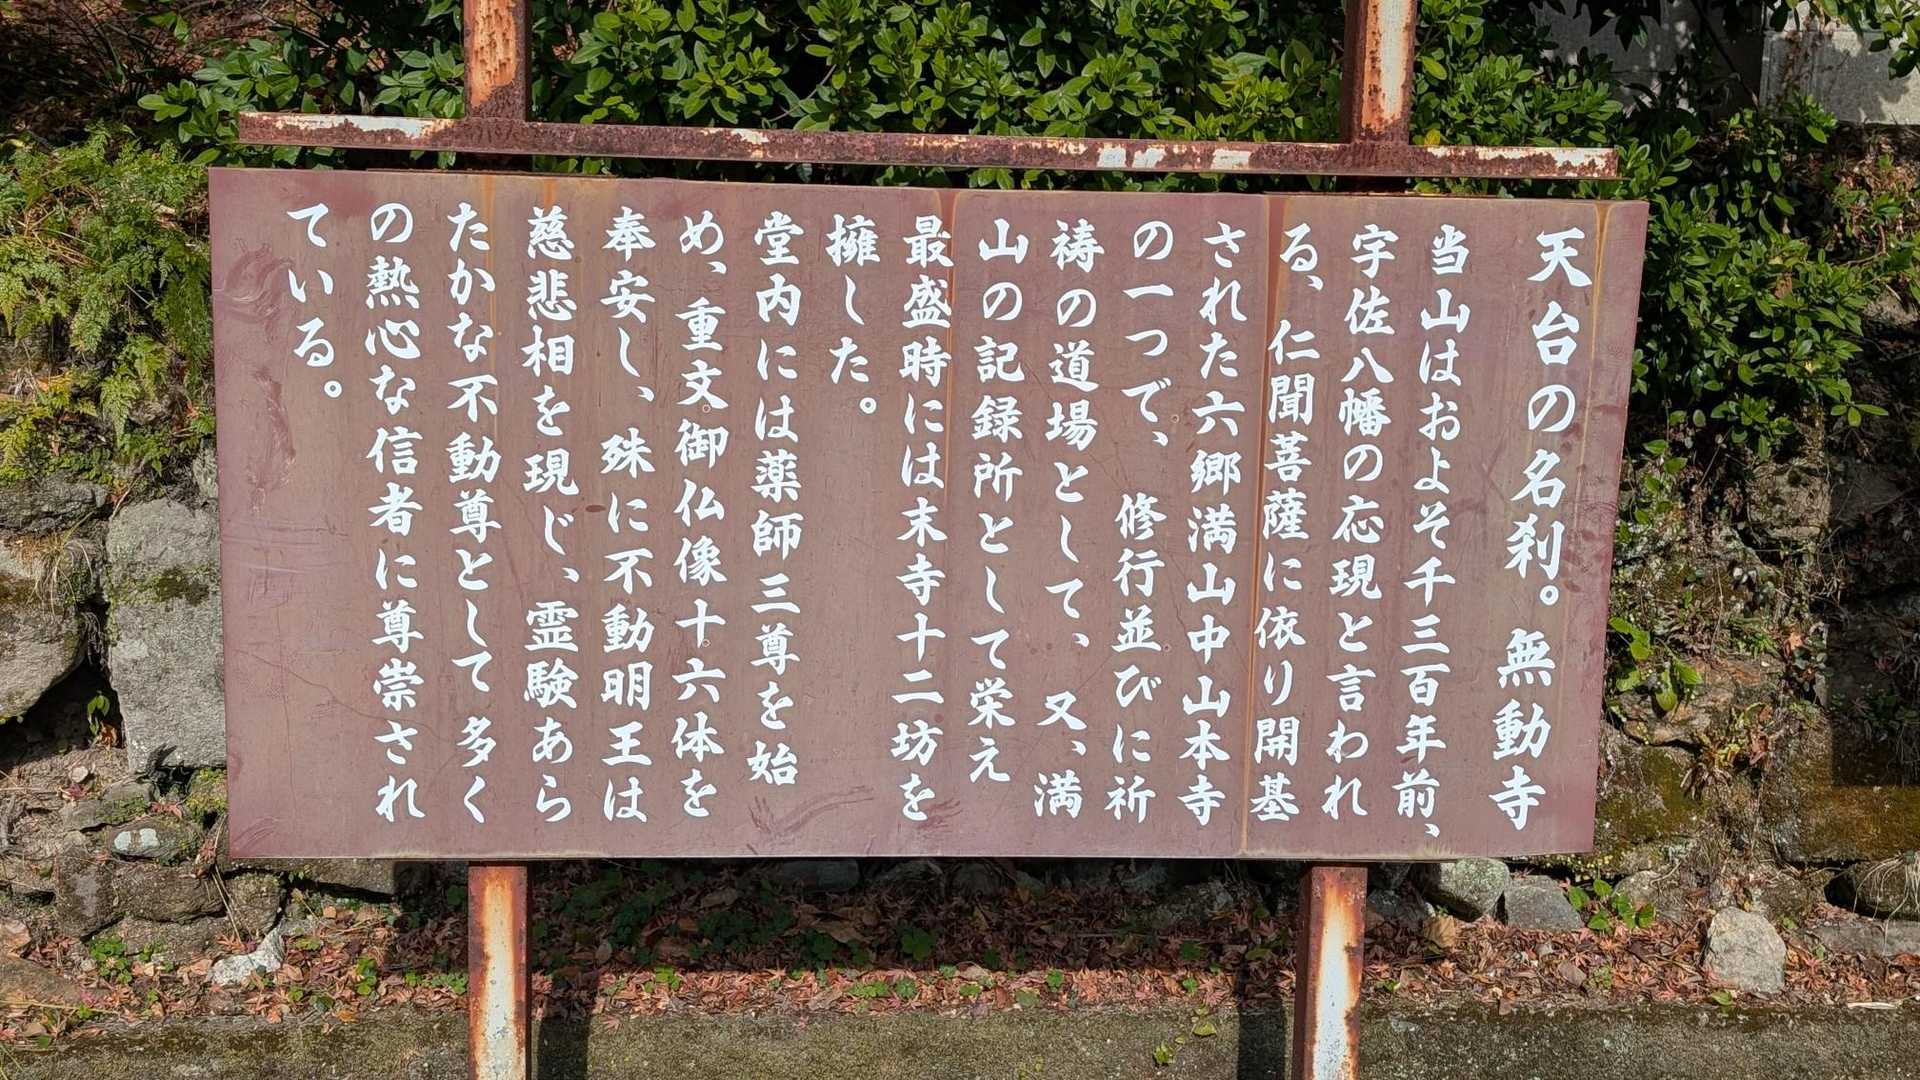 天台の名刹。無動寺
当山はおよそ千三百年前、
宇佐八幡の応現と言われ
る、仁聞菩薩に依り開基
された六郷満山中山本寺
の一つで、修行並びに祈
祷の道場として、又、満
山の記録所として栄え
最盛時には末寺十二坊を
擁した。
堂内には薬師三尊を始
め、重文御仏像十六体を
奉安し、殊に不動明王は
慈悲相を現じ、霊験あら
たかな不動尊として多く
の熱心な信者に尊崇され
ている。